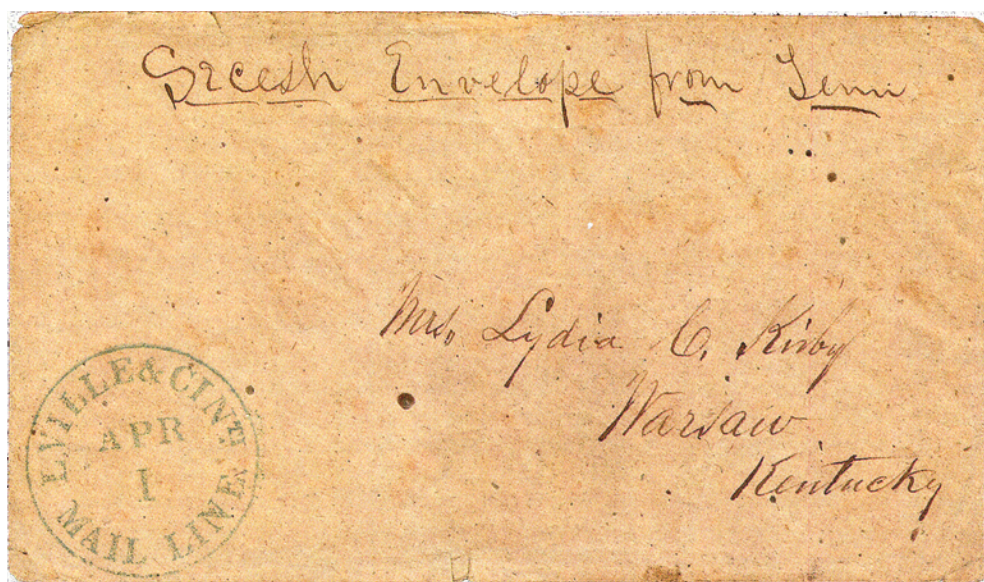 Secesh Envelope from Tenn
Mrs. Lydia C. Kirby
Warsaw
Kentucky
L.VILLE & CINTI
MAIL LINE
APR
1